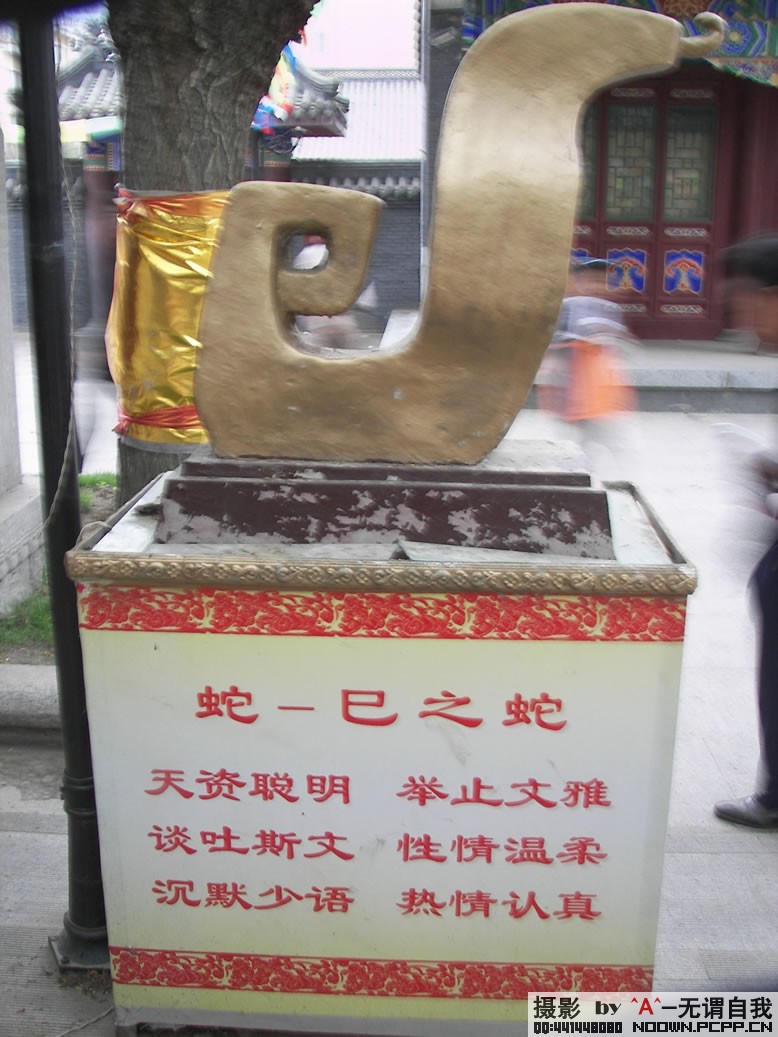 蛇－巳之蛇
天资聪明 举止文雅
谈吐斯文 性情温柔
沉默少语 热情认真
摄影 by ^A^—无谓自我
QQ:441448080 NOOWN.PCPP.CN